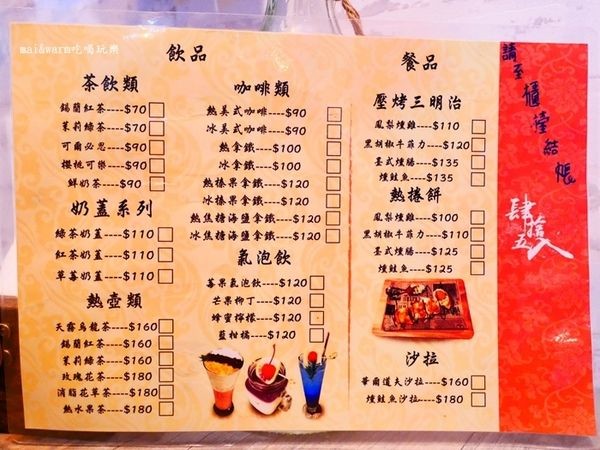 mai&warm吃喝玩樂
飲品
茶飲類
錫蘭紅茶----$70
茉莉綠茶----$70
可爾必思----$90
櫻桃可樂----$90
鮮奶茶----$90
奶蓋系列
綠茶奶蓋----$110
紅茶奶蓋----$110
草莓奶蓋----$110
熱壺類
天霧烏龍茶----$160
錫蘭紅茶----$160
茉莉綠茶----$160
玫瑰花茶----$180
消脂花草茶----$180
熱水果茶----$180
咖啡類
熱美式咖啡----$90
冰美式咖啡----$90
熱拿鐵----$100
冰拿鐵----$100
熱榛果拿鐵----$120
冰榛果拿鐵----$120
熱焦糖海鹽拿鐵----$120
冰焦糖海鹽拿鐵----$120
氣泡飲
莓果氣泡飲----$120
芒果柳丁----$120
蜂蜜檸檬----$120
藍柑橘----$120
餐品
壓烤三明治
鳳梨燻雞----$110
黑胡椒牛菲力----$120
墨式燻腸----$135
燻鮭魚----$135
熱捲餅
鳳梨燻雞----$100
黑胡椒牛菲力----$110
墨式燻腸----$125
燻鮭魚----$125
沙拉
華爾道夫沙拉----$160
燻鮭魚沙拉----$180
請至櫃檯結帳
肆拾五